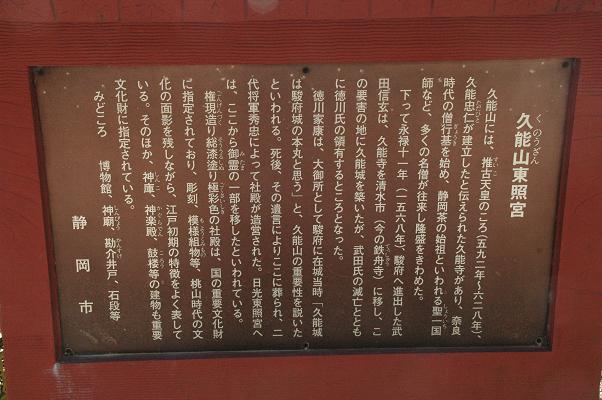 久能山東照宮
くのうざん
久能山には、推古天皇のころ（五九二年～六二八年）、
久能忠仁が建立したと伝えられた久能寺があり、奈良
時代の僧行基を始め、静岡茶の始祖といわれる聖一国
師など、多くの名僧が往来し隆盛をきわめた。
下って永禄十一年（一五六八年）、駿府へ進出した武
田信玄は、久能寺を清水市（今の鉄舟寺）に移し、こ
の要害の地に久能城を築いたが、武田氏の滅亡ととも
に徳川氏の領有するところとなった。
徳川家康は、大御所として駿府に在城当時「久能城
は駿府城の本丸と思う」と、久能山の重要性を説いた
といわれる。死後、その遺言によりここに葬られ、二
代将軍秀忠によって社殿が造営された。日光東照宮へ
は、ここから御霊の一部を移したといわれている。
権現造り総漆塗り極彩色の社殿は、国の重要文化財
に指定されており、彫刻、模様組物等、桃山時代の文
化の面影を残しながら、江戸初期の特徴をよく表して
いる。そのほか、神庫、神楽殿、鼓楼等の建物も重要
文化財に指定されている。
みどころ　博物館、神廟、勘介井戸、石段等
静岡市